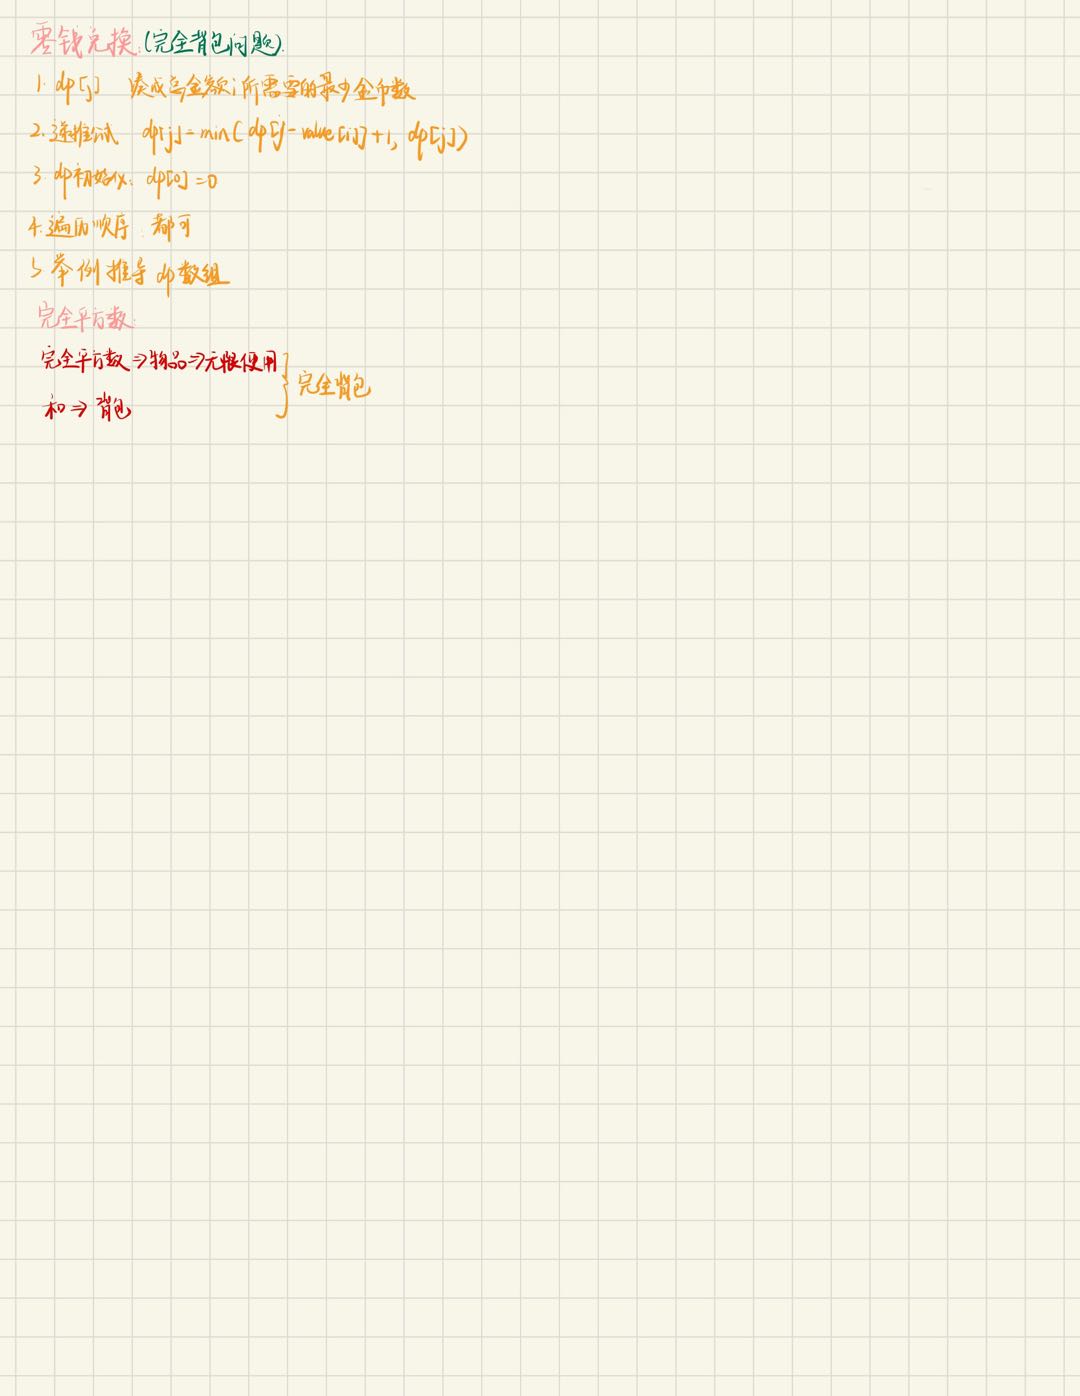 零钱兑换:(完全背包问题).
1. dp[j] 凑成总金额j所需要的最少金币数
2. 递推公式 dp[j]=min(dp[j-value[i]]+1, dp[j])
3. dp初始化: dp[0]=0
4. 遍历顺序: 都可
5 举例推导dp数组
完全平方数:
完全平方数⇒物品⇒无限使用
和⇒背包
完全背包